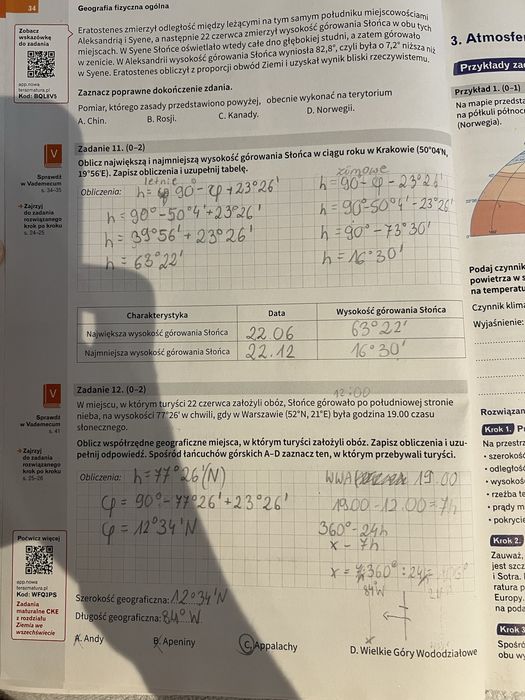 34
Geografia fizyczna ogólna
Zobacz
wskazówkę
do zadania
app.nowa
teraxmatura.pl
Kod: BQL8V5
Eratostenes zmierzył odległość między leżącymi na tym samym południku miejscowościami
Aleksandrią i Syene, a następnie 22 czerwca zmierzył wysokość górowania Słońca w obu tych
miejscach. W Syene Słońce oświetlało wtedy całe dno głębokiej studni, a zatem górowało
w zenicie. W Aleksandrii wysokość górowania Słońca wyniosła 82,8°, czyli była o 7,2° niższa niż
w Syene. Eratostenes obliczył z proporcji obwód Ziemi i uzyskał wynik bliski rzeczywistemu.
Zaznacz poprawne dokończenie zdania.
Pomiar, którego zasady przedstawiono powyżej, obecnie wykonać na terytorium
A. Chin. B. Rosji. C. Kanady. D. Norwegii.
V
Sprawdź
w Vademecum
s. 34–35
→ Zajrzyj
do zadania
rozwiązanego
krok po kroku
s. 24–25
Zadanie 11. (0–2)
Oblicz największą i najmniejszą wysokość górowania Słońca w ciągu roku w Krakowie (50°04'N,
19°56'E). Zapisz obliczenia i uzupełnij tabelę.
letnie
zimowe
Obliczenia: h= 90-φ+23°26'
h=90-φ-23°26'
h=90°-50°4'+23°26'
h=90°-50°4'-23°26'
h=39°56'+23°26'
h=90°-73°30'
h=63°22'
h=16°30'
Charakterystyka Data Wysokość górowania Słońca
Największa wysokość górowania Słońca 22.06 63°22'
Najmniejsza wysokość górowania Słońca 22.12 16°30'
V
Sprawdź
w Vademecum
s. 41
→ Zajrzyj
do zadania
rozwiązanego
krok po kroku
s. 25–26
Zadanie 12. (0–2)
12:00
W miejscu, w którym turyści 22 czerwca założyli obóz, Słońce górowało po południowej stronie
nieba, na wysokości 77°26' w chwili, gdy w Warszawie (52°N, 21°E) była godzina 19.00 czasu
słonecznego.
Oblicz współrzędne geograficzne miejsca, w którym turyści założyli obóz. Zapisz obliczenia i uzu-
pełnij odpowiedź. Spośród łańcuchów górskich A–D zaznacz ten, w którym przebywali turyści.
Obliczenia: h=77°26'(N)
WWA 19.00
φ= 90°-77°26'+23°26'
19.00-12.00=7h
φ=12°34'N
360°-24h
x - 7h
x = 7·360° : 24 =
84W
Szerokość geograficzna: 12°34'N
Długość geograficzna: 84° W
A. Andy B. Apeniny C. Appalachy D. Wielkie Góry Wododziałowe
Poćwicz więcej
app.nowa
teraxmatura.pl
Kod: WFQ3PS
Zadania
maturalne CKE
z rozdziału
Ziemia we
wszechświecie
3. Atmosfe
Przykłady za
Przykład 1. (0–1)
Na mapie przedsta
na półkuli północ
(Norwegia).
Podaj czynnik
powietrza w s
na temperatu
Czynnik klima
Wyjaśnienie:
Rozwiązan
Krok 1. P
Na przestrz
• szerokoś
• odległość
• wysokoś
• rzeźba te
• prądy m
• pokrycie
Krok 2.
Zauważ,
jest szcz
i Sotra.
ratura p
Europy.
na poda
Krok 3
Sposró
obu wy